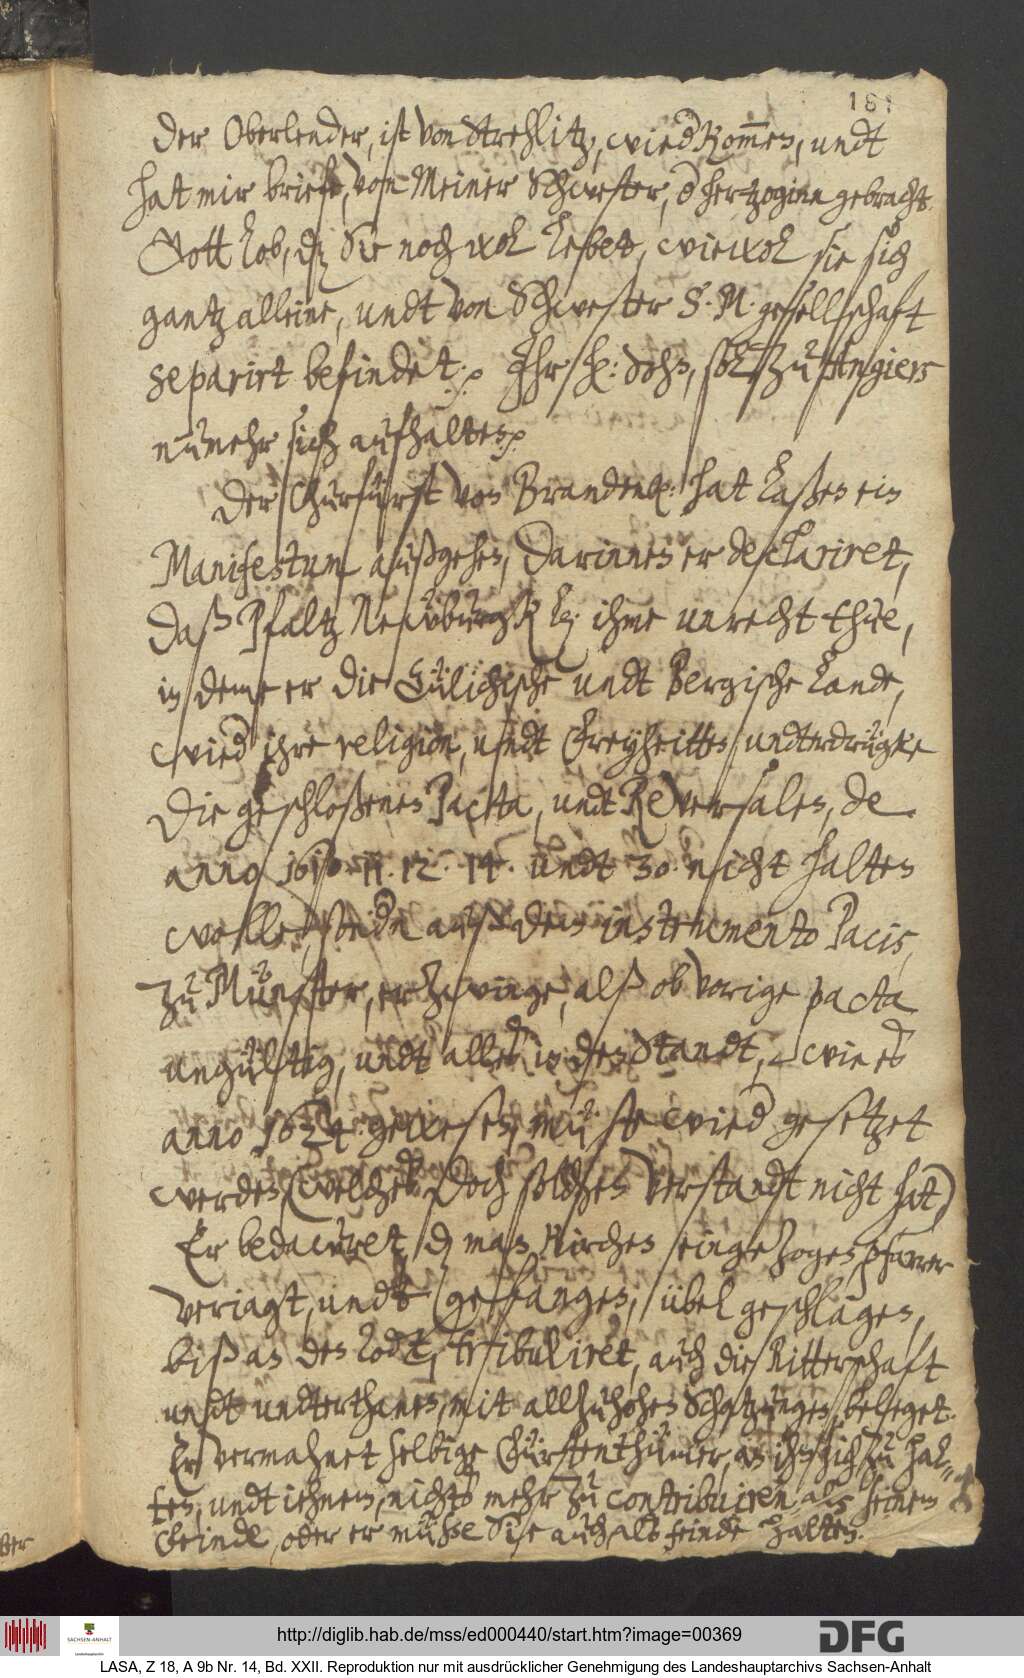 181
der Oberlender, ist von Strehlitz, wied kom̄en, undt
hat mir briefe, von Meiner Schwester, d hertzoginn gebracht.
Gott lob, dz Sie noch wol lebet, wiewol sie sich
gantz alleine, undt von Schwester S. M. gesellschaft
separirt befindet. Ihr H: Sohn, sol zu Angiers
nunmehr sich aufhalten.
Der Churfürst von Brandenb: hat laßen ein
Manifestum außgehen, darinnen er declariret,
daß Pfaltz Newburgk ihme unrecht thue,
in deme er die Gülichische undt Bergische Lande,
wied ihre religion, undt Freyheitten undterdrügke
die geschloßenen Pacta, undt Reversalen, de
anno 1610. 11. 12. 14. undt 30. nicht halten
wolle, auß dem instrumento Pacis,
zu Münster, erzwinge, alß ob vorige pacta
ungültig, undt alles in den Standt, wie es
anno 1624. gewesen, müste wied gesetzet
werden, (welches doch solchen verstandt nicht hat)
Er bedawret, dz man Kirchen eingezogen, pfarrer
verjagt, undt gefangen, übel geschlagen,
biß an den todt, tribuliret, auch die Ritterschaft
undt undterthanen, mit allzuhohen Schatzungen, beleget.
Er vermahnet selbige Fürstenthümer, an ihn sich zu hal-
ten, undt iehnem, nichts mehr zu contribuiren, als seinem
Feinde, oder er müße Sie auch als feinde halten.
http://diglib.hab.de/mss/ed000440/start.htm?image=00369
SACHSEN-ANHALT
DFG
LASA, Z 18, A 9b Nr. 14, Bd. XXII. Reproduktion nur mit ausdrücklicher Genehmigung des Landeshauptarchivs Sachsen-Anhalt